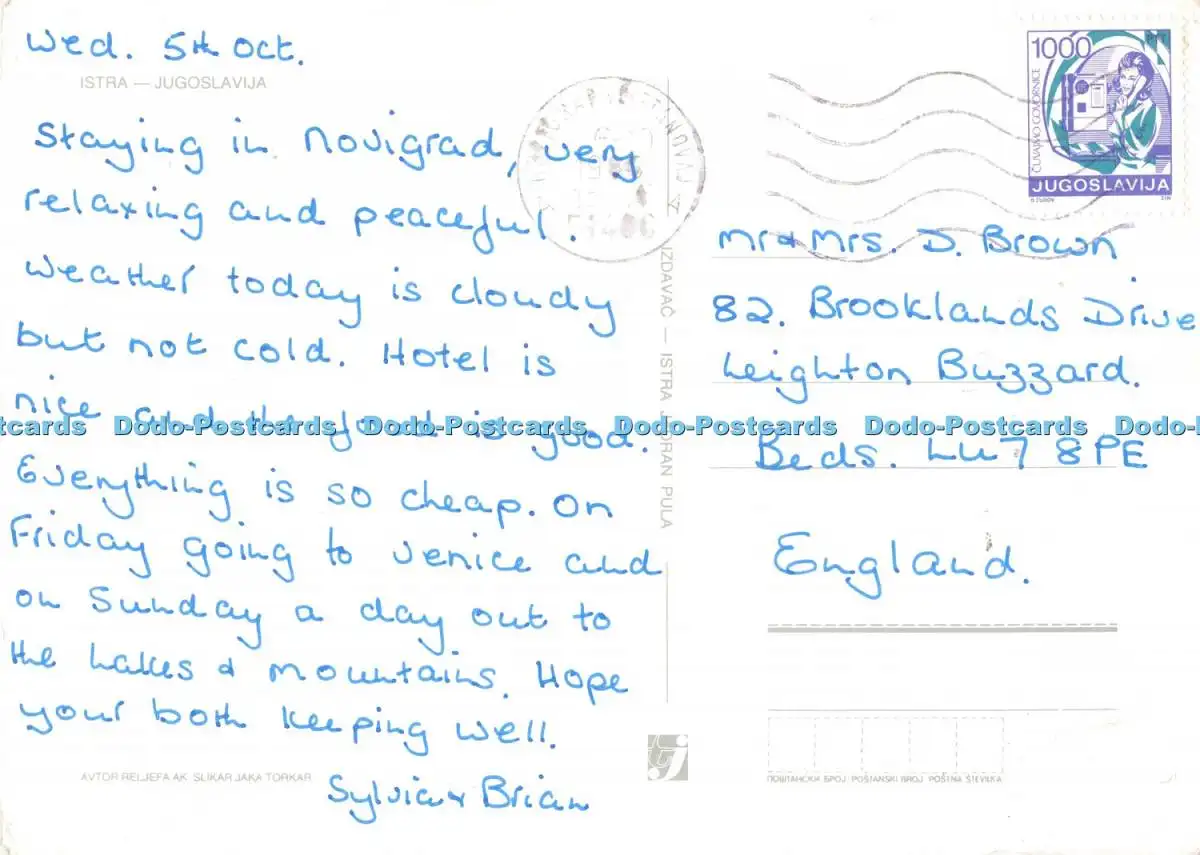 Wed. 5th Oct.
ISTRA — JUGOSLAVIJA
Staying in Novigrad, very
relaxing and peaceful.
Weather today is cloudy
but not cold. Hotel is
nice and the food is good.
Everything is so cheap. On
Friday going to Venice and
on Sunday a day out to
the Lakes & mountains. Hope
your both keeping well.
Sylvia & Brian
AVTOR RELJEFA AK. SLIKAR JAKA TORKAR
IZDAVAČ — ISTRA JADRAN PULA
1000
PTT
ČUVAJMO GOVORNICE
JUGOSLAVIJA
Mr & Mrs. D. Brown
82. Brooklands Drive
Leighton Buzzard.
Beds. LU7 8PE
England.
ПОШТАНСКИ БРОЈ POŠTANSKI BROJ POŠTNA ŠTEVILKA
Dodo-Postcards Dodo-Postcards Dodo-Postcards Dodo-Postcards